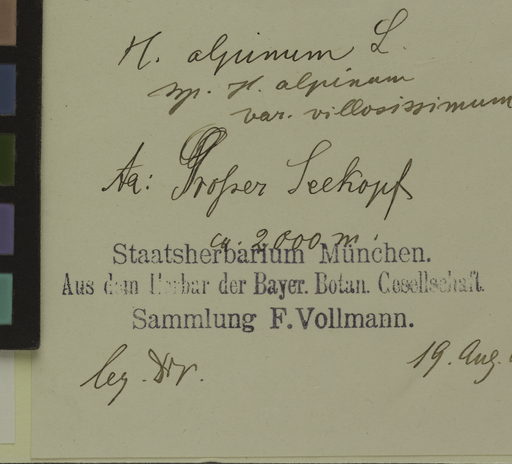 H. alpinum L.
ssp. H. alpinum
var. villosissimum
Aa: Großer Seekopf
ca. 2000 m.
Staatsherbarium München.
Aus dem Herbar der Bayer. Botan. Gesellschaft.
Sammlung F. Vollmann.
leg.
19. Aug.